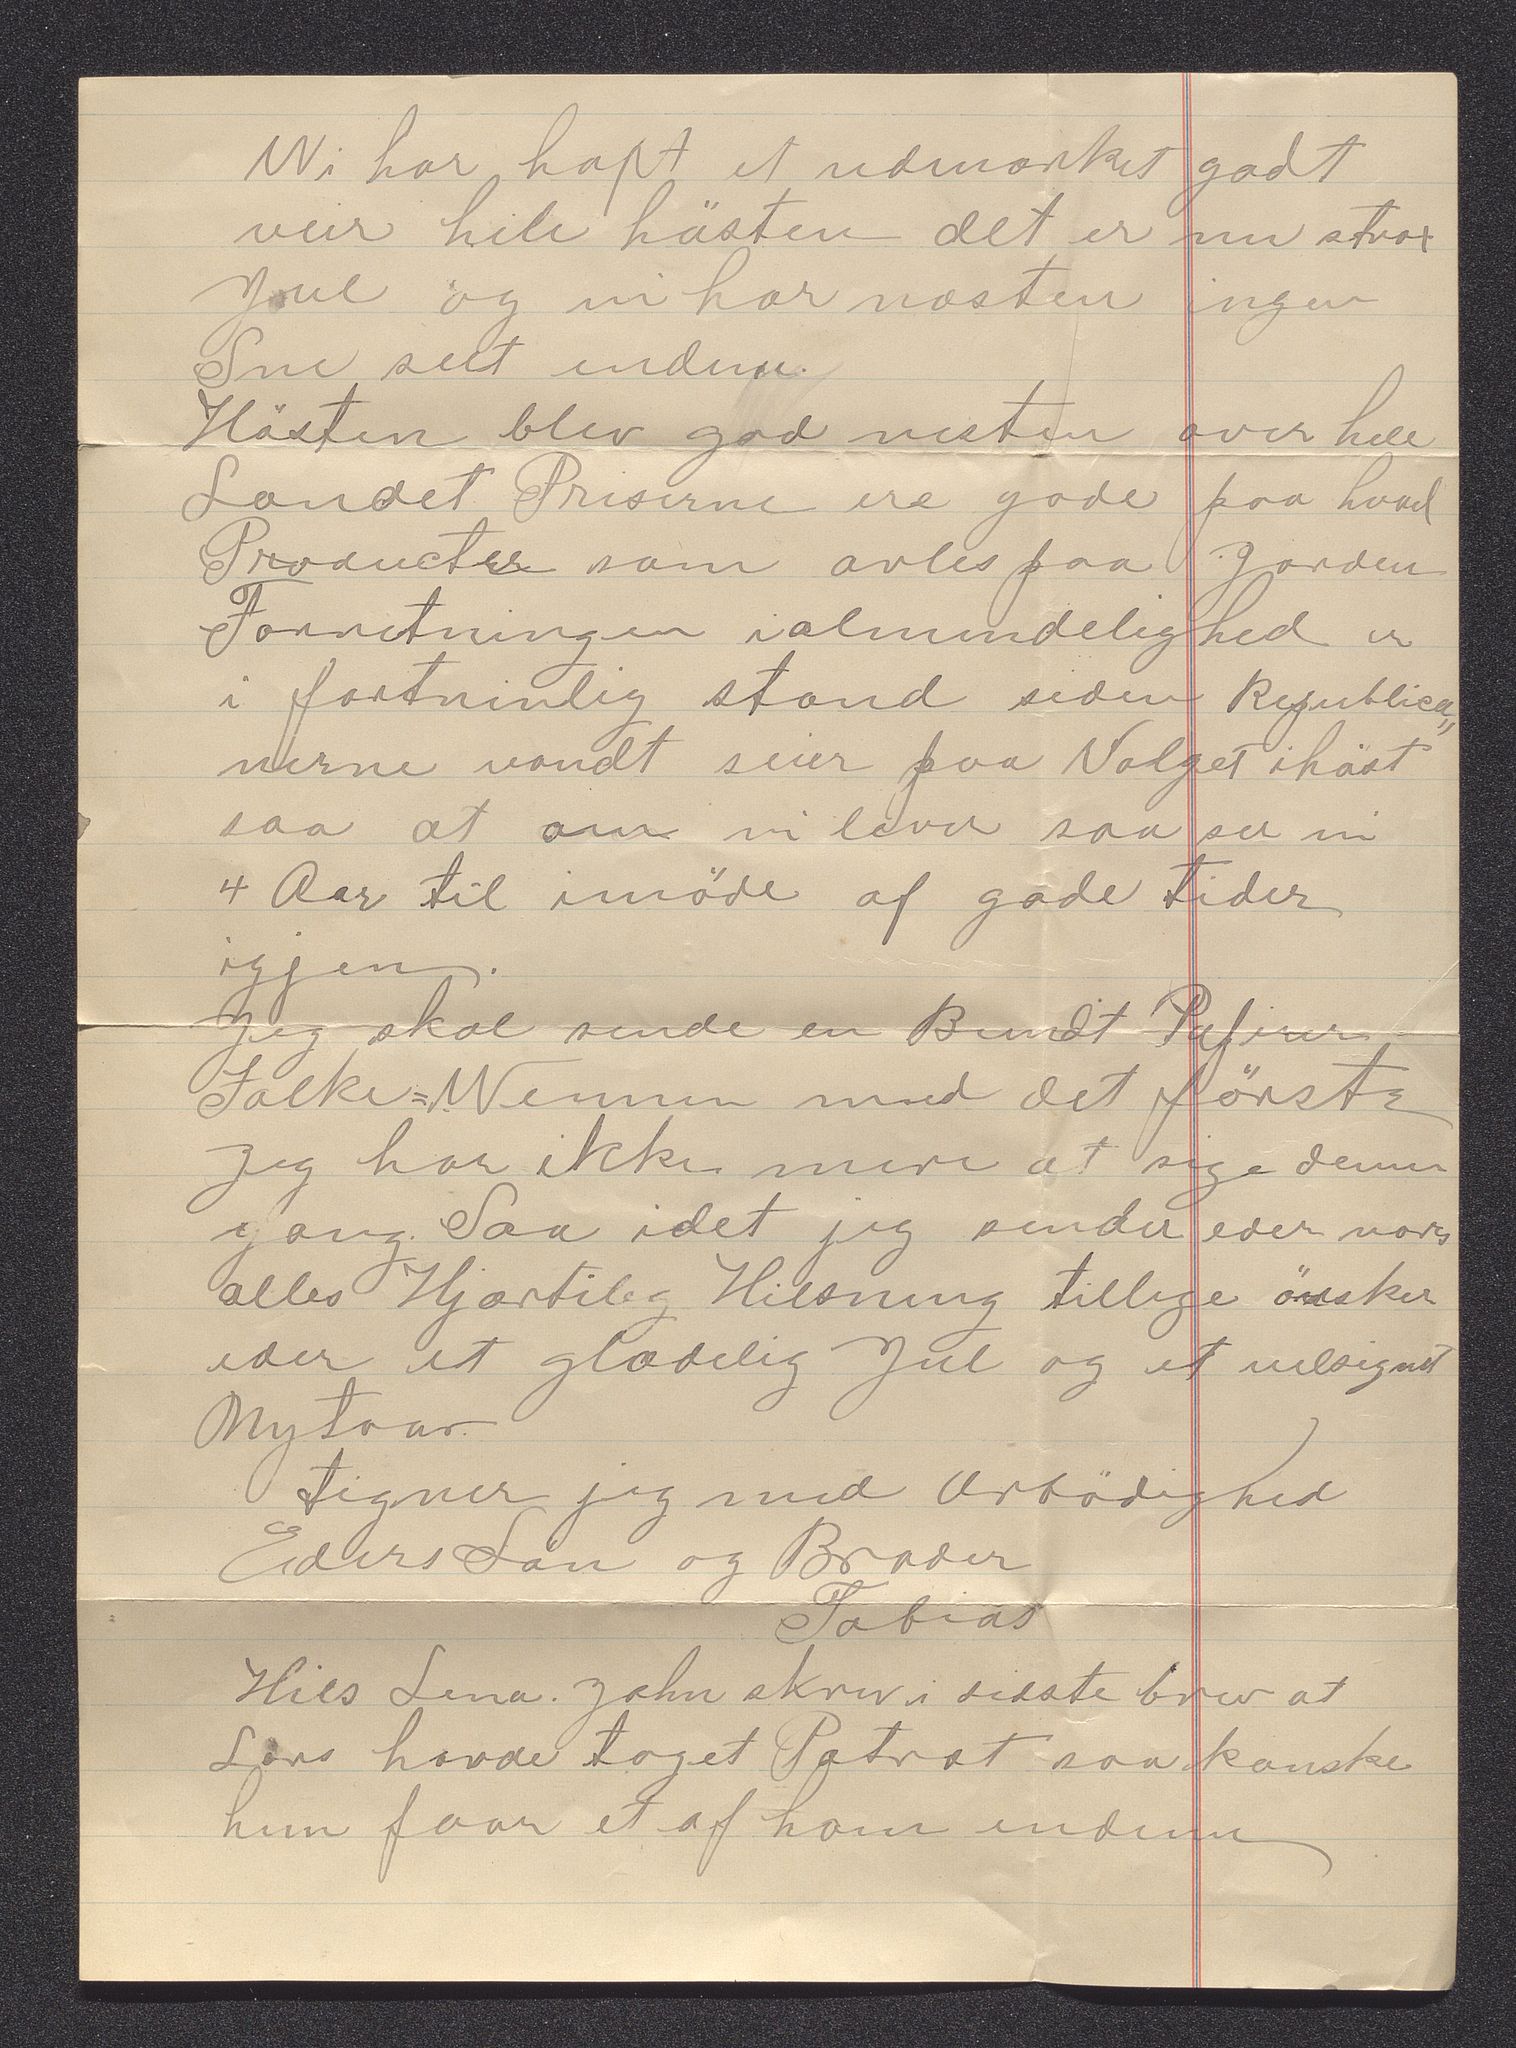 Wi har hapt et udmærket godt
veir hele hösten det er nu strax
Jul og vi har næsten ingen
Sne seet endnu.
Hösten blev god nesten over hele
Landet Priserne ere gode paa hvad
Producter som avles paa Jorden
Forretningen ialmindelighed er
i fortrinlig stand siden Republica„
nerne vandt seier paa Valget ihöst
saa at om vi lever saa ser vi
4 Aar til imöde af gode tider
igjen.
Jeg skal sende en Bundt Papirer
Folke=Wennen med det förste
Jeg har ikke mere at sige denne
gang. Saa idet jeg sender eder vors
alles Hjærtileg Hilsning tillige önsker
eder et glædelig Jul og et velsignet
Nytaar.
tigner jeg med Ærbödighed
Eders Sön og Broder
Tobias
Hils Lena. John skrev i sidste brev at
Lars havde taget Patrat saa kanske
hun faar et af ham endnu